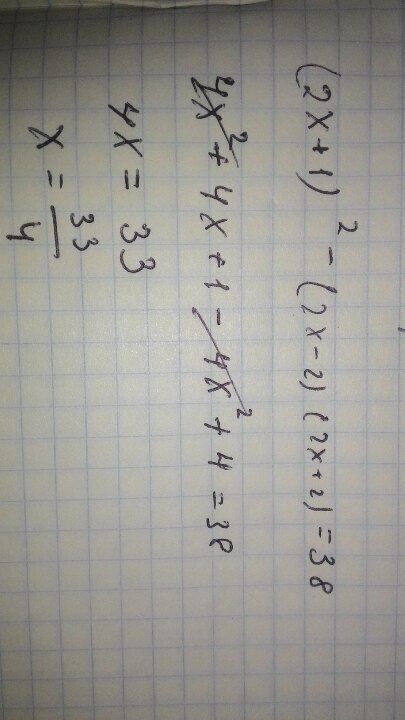 (2x+1)² - (2x-2)(2x+2)=38
4x²+4x+1-4x²+4=38
4x=33
x=33/4